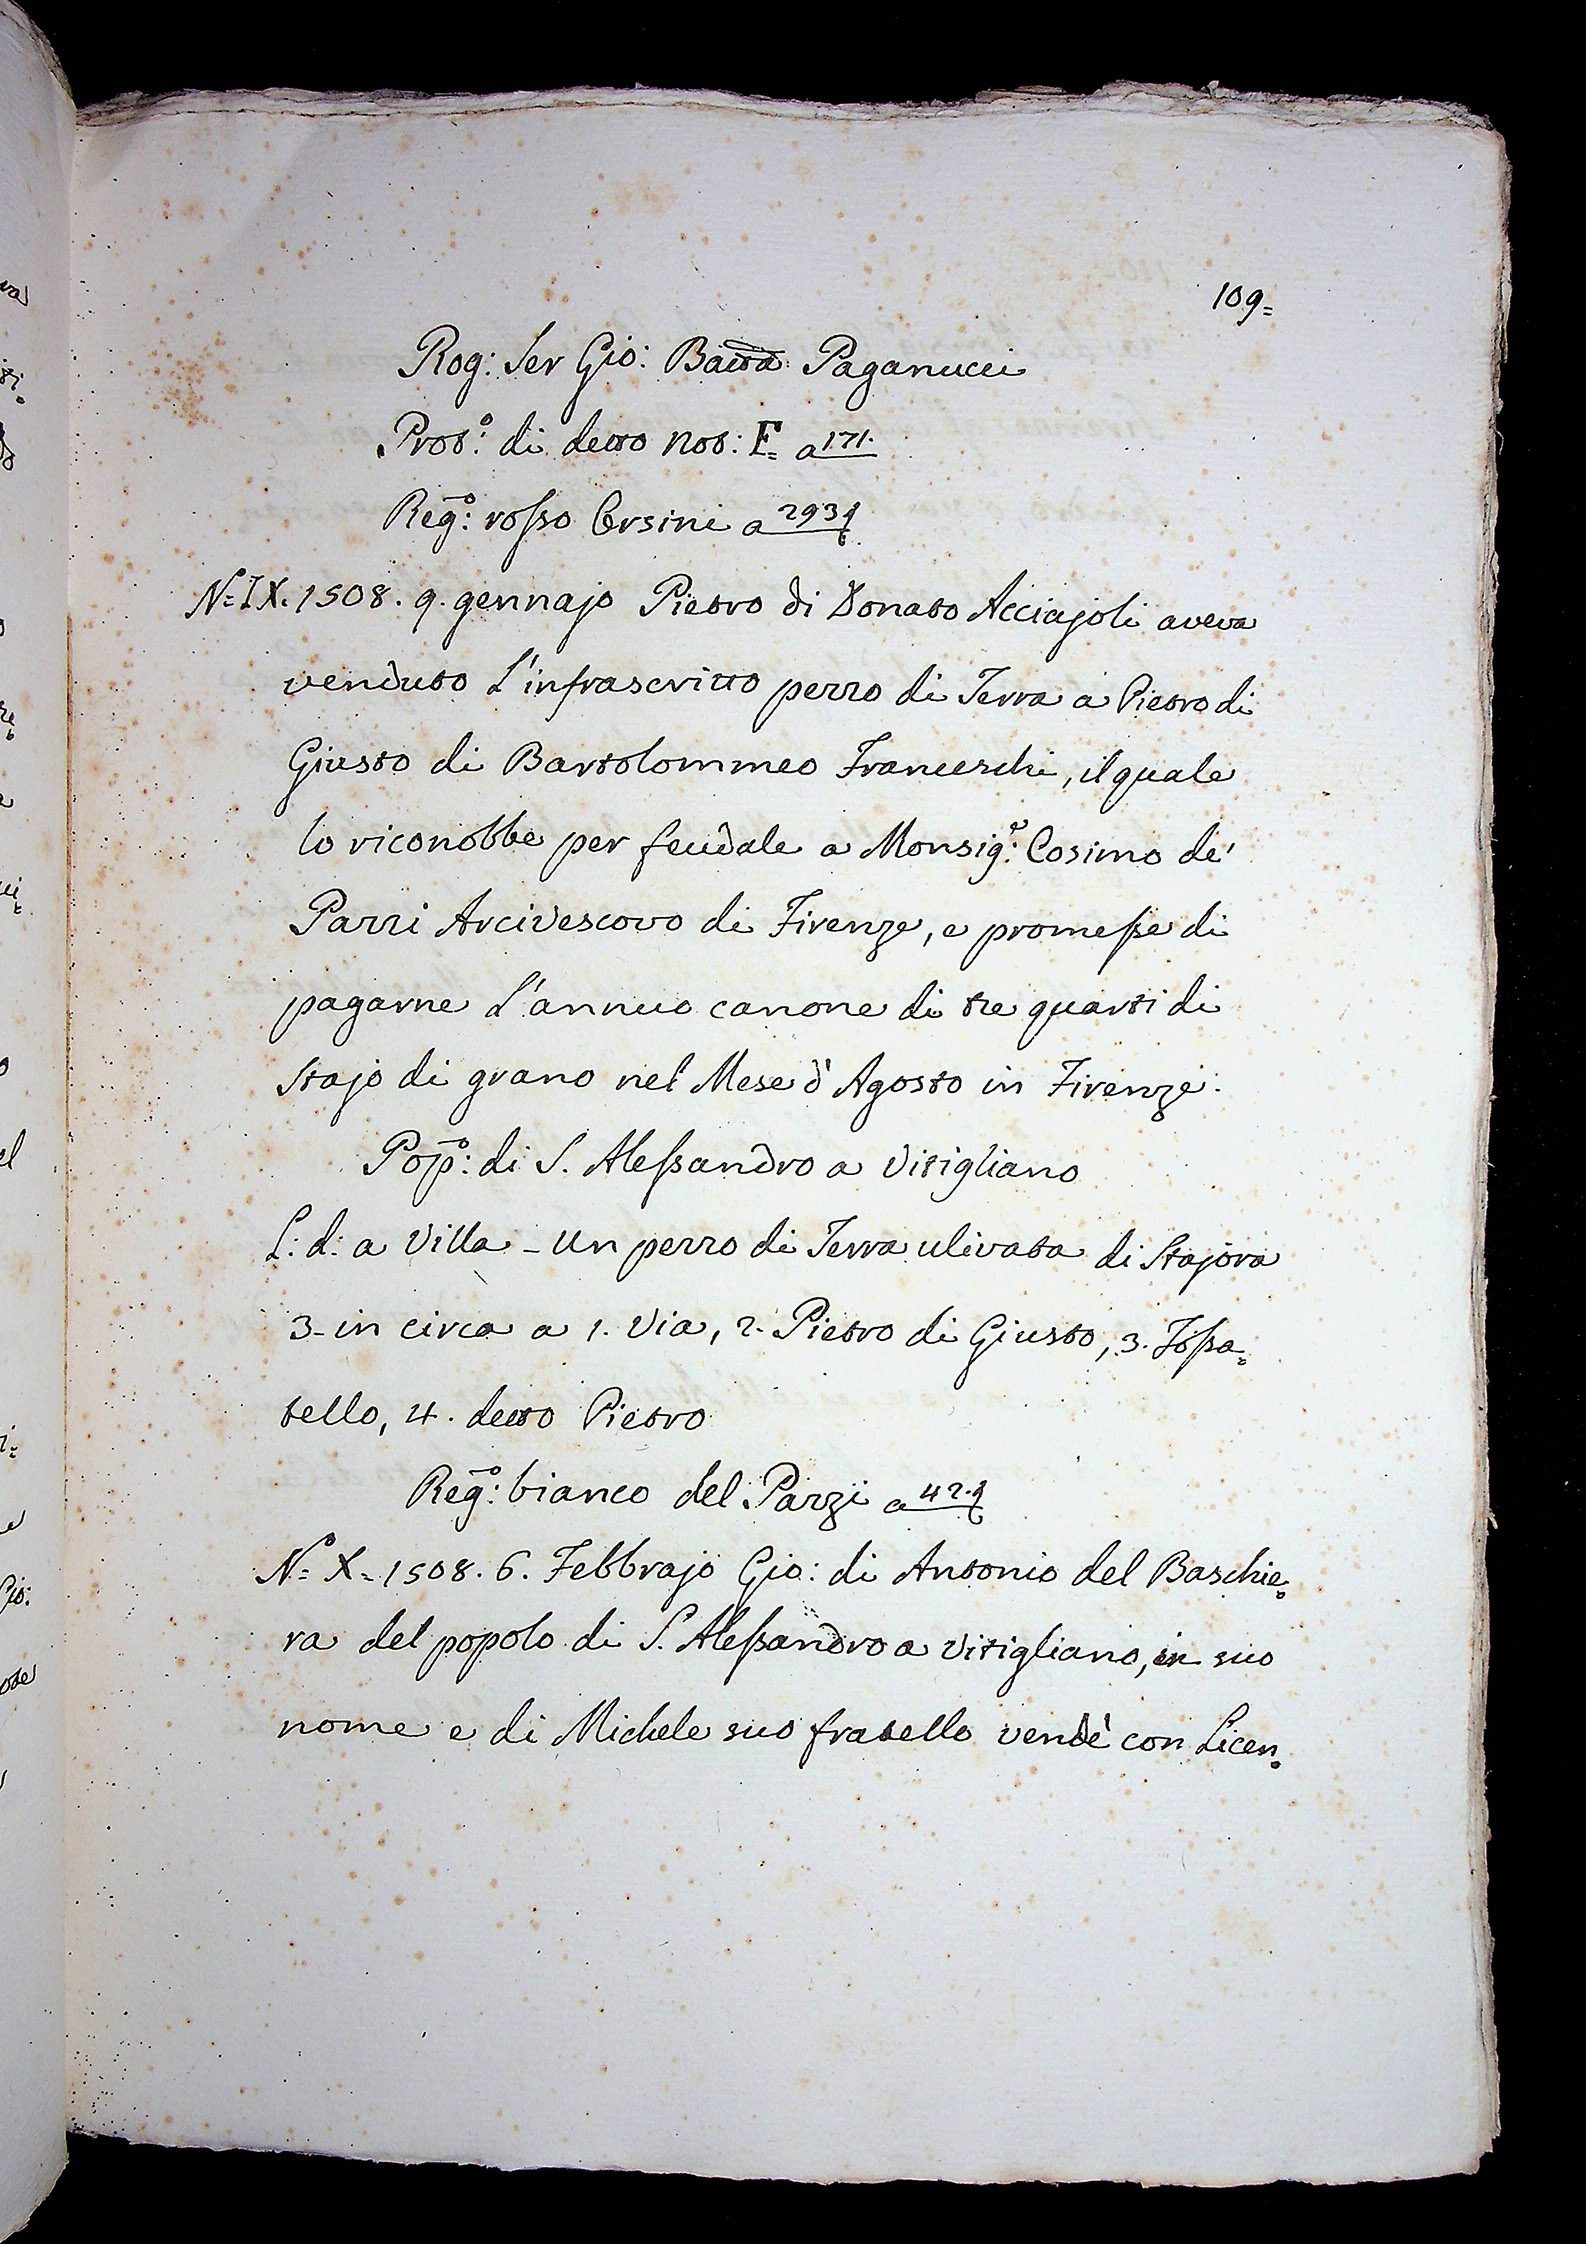 109=
Rog: Ser Gio: Batta Paganucci
Prot.º: di detto Not: F= a 171.
Reg.º: rosso Orsini a 293
Nº IX. 1508. 9. gennajo Pietro di Donato Acciajoli aveva
venduto l'infrascritto pezzo di Terra a Pietro di
Giusto di Bartolommeo Franceschi, il quale
lo riconobbe per feudale a Monsig.e: Cosimo de'
Pazzi Arcivescovo di Firenze, e promesse di
pagarne l'annuo canone di tre quarti di
Stajo di grano nel Mese d'Agosto in Firenze.
Pop.º: di S. Alessandro a Vitigliano
L: d: a Villa - Un pezzo di Terra ulivata di Stajora
3- in circa a 1. Via, 2. Pietro di Giusto, 3. Fossa=
tello, 4. detto Pietro
Reg.º: bianco del Pazzi a 42.
Nº X= 1508. 6. Febbrajo Gio: di Antonio del Baschie=
ra del popolo di S. Alessandro a Vitigliano, in suo
nome e di Michele suo fratello vendè con Licen=